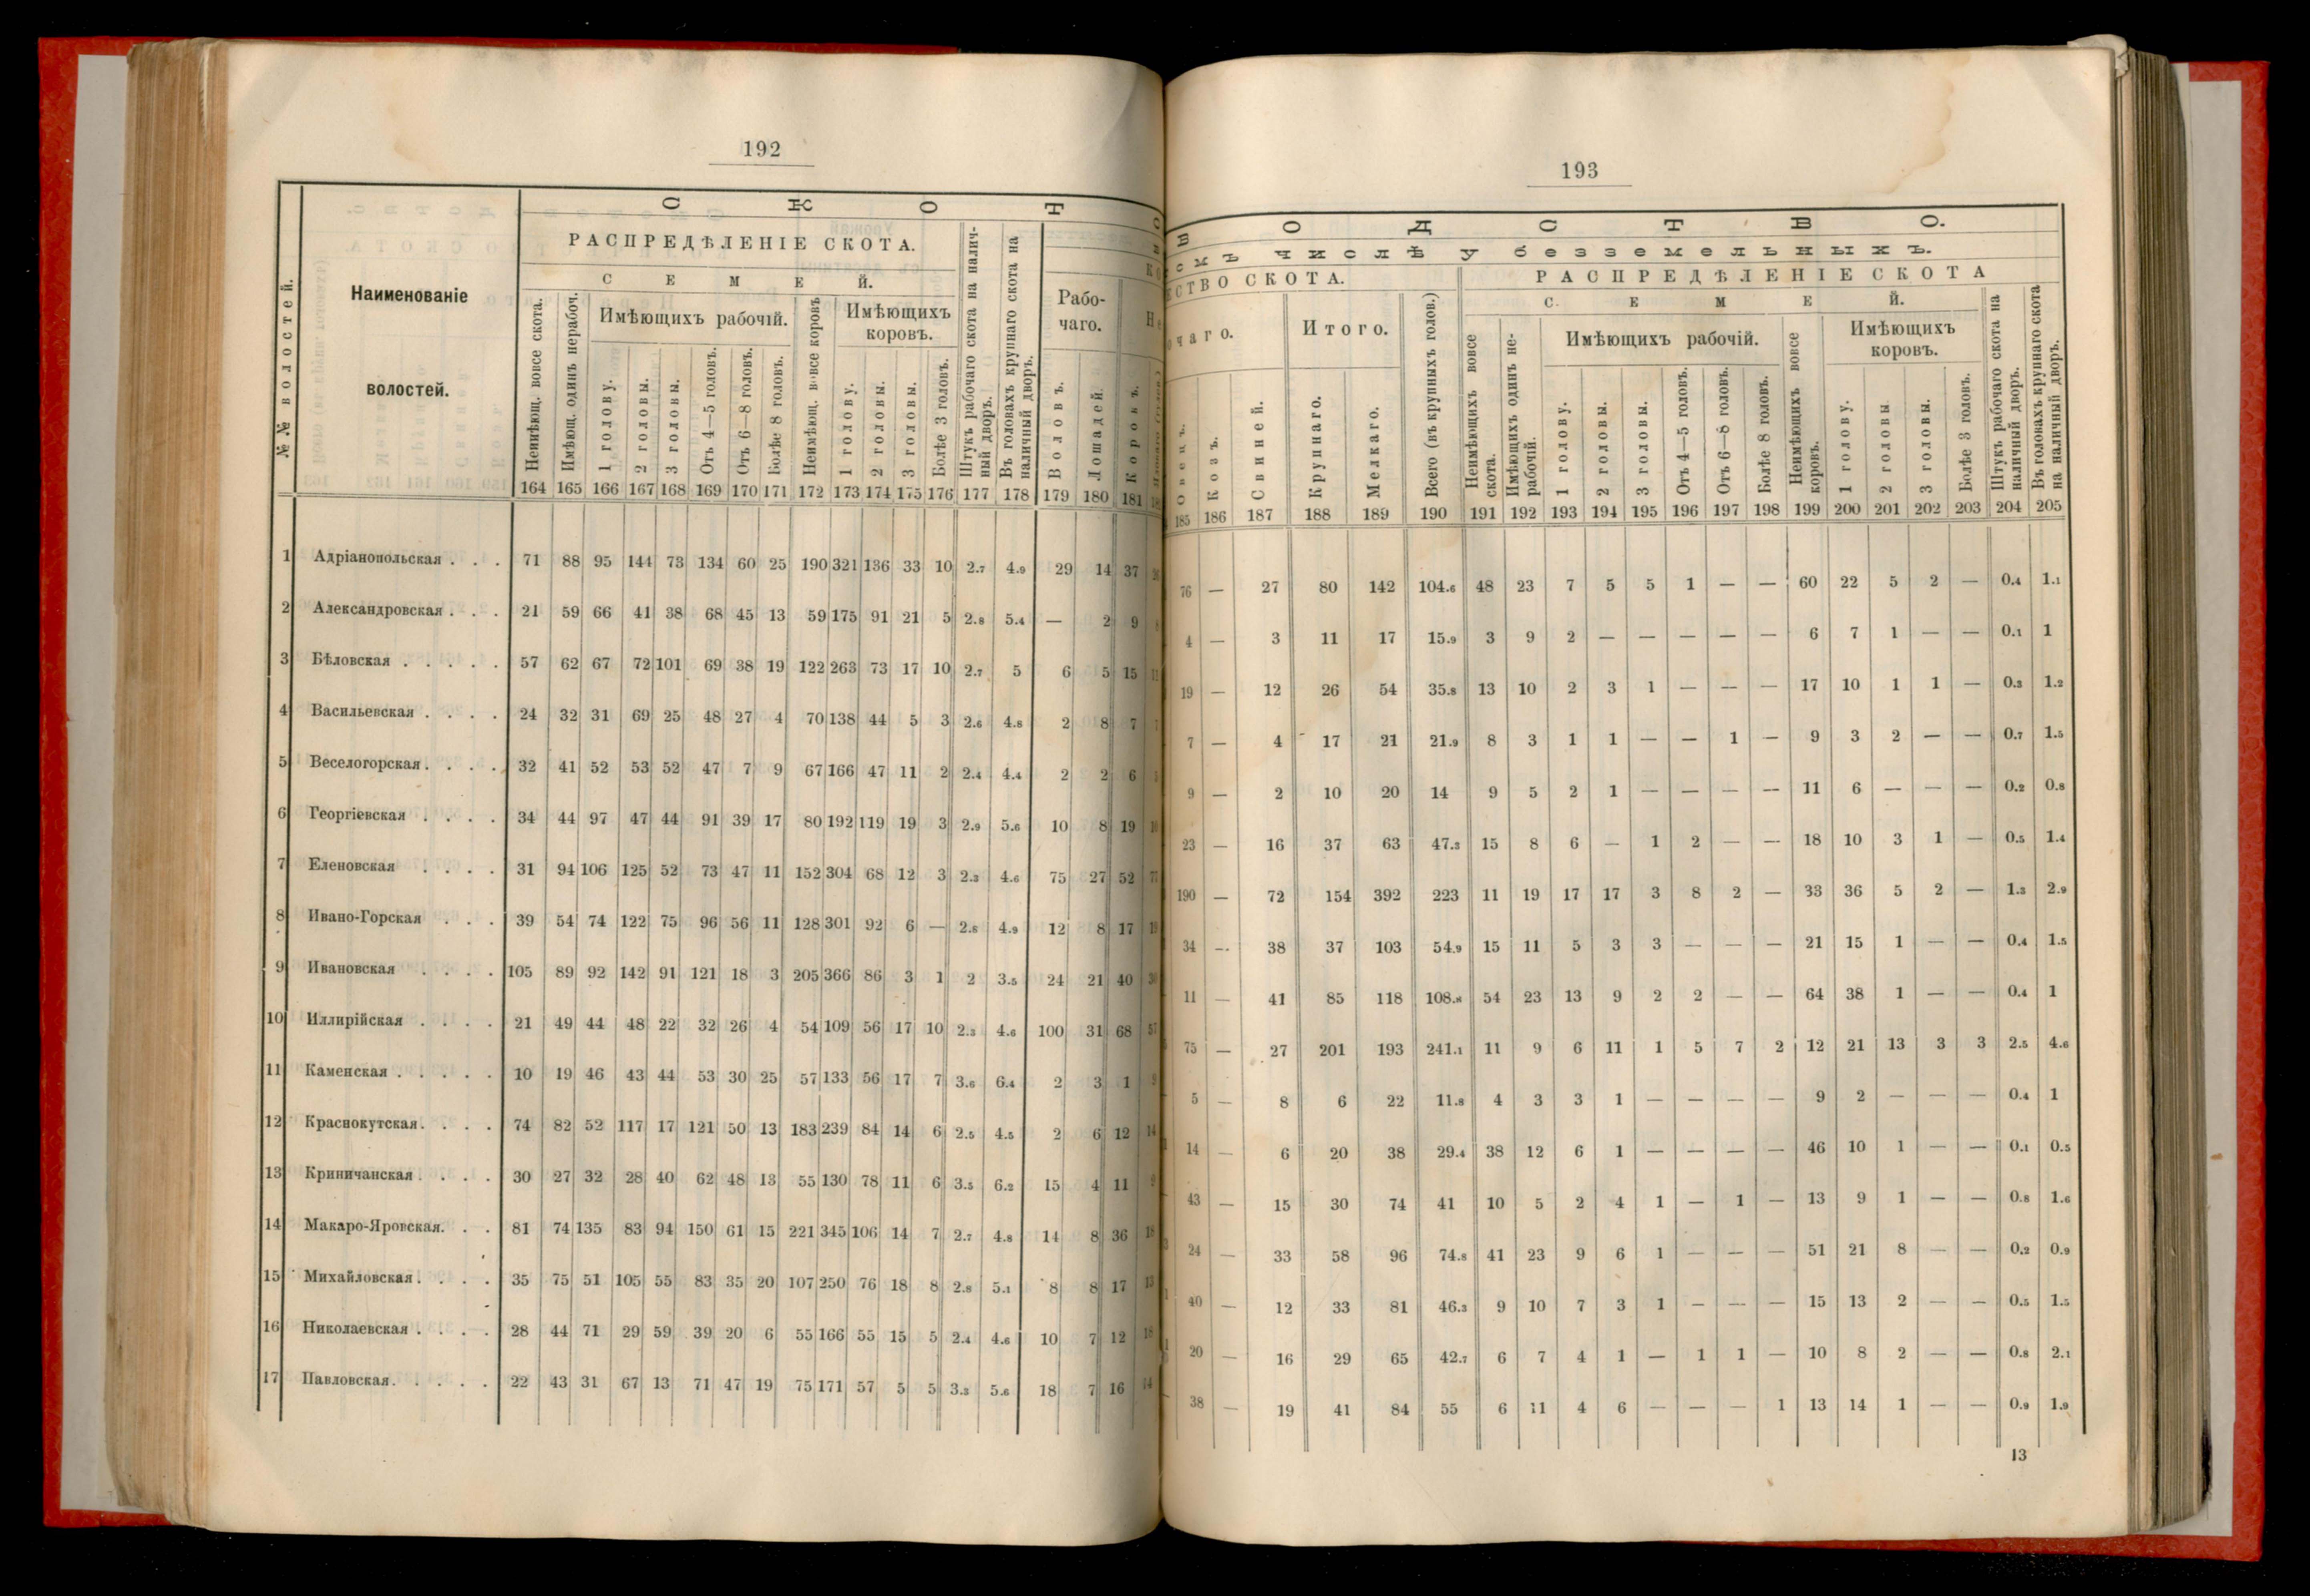 192
СКОТ
РАСПРЕДѢЛЕНІЕ СКОТА.
СЕМЕЙ.
№№ волостей.
Наименованіе
волостей.
Неимѣющ. вовсе скота.
Имѣющ. одинъ нерабоч.
Имѣющихъ рабочій.
1 голову.
2 головы.
3 головы.
Отъ 4—5 головъ.
Отъ 6—8 головъ.
Болѣе 8 головъ.
Неимѣющ. вовсе коровъ
Имѣющихъ
коровъ.
1 голову.
2 головы.
3 головы.
Болѣе 3 головъ.
Штукъ рабочаго скота на налич-
ный дворъ.
Въ головахъ крупнаго скота на
наличный дворъ.
Рабо-
чаго.
Воловъ.
Лошадей.
Коровъ.
164 165 166 167 168 169 170 171 172 173 174 175 176 177 178 179 180 181
1 Адріанопольская . . . 71 88 95 144 73 134 60 25 190 321 136 33 10 2.7 4.9 29 14 37
2 Александровская . . . 21 59 66 41 38 68 45 13 59 175 91 21 5 2.8 5.4 — 2 9
3 Бѣловская . . . . . 57 62 67 72 101 69 38 19 122 263 73 17 10 2.7 5 6 5 15
4 Васильевская . . . . 24 32 31 69 25 48 27 4 70 138 44 5 3 2.6 4.8 2 8 7
5 Веселогорская . . . . 32 41 52 53 52 47 7 9 67 166 47 11 2 2.4 4.4 2 2 6
6 Георгіевская . . . . 34 44 97 47 44 91 39 17 80 192 119 19 3 2.9 5.6 10 8 19
7 Еленовская . . . . 31 94 106 125 52 73 47 11 152 304 68 12 3 2.3 4.6 75 27 52
8 Ивано-Горская . . . 39 54 74 122 75 96 56 11 128 301 92 6 — 2.8 4.9 12 8 17
9 Ивановская . . . . 105 89 92 142 91 121 18 3 205 366 86 3 1 2 3.5 24 21 40
10 Иллирійская . . . . 21 49 44 48 22 32 26 4 54 109 56 17 10 2.3 4.6 100 31 68
11 Каменская . . . . . 10 19 46 43 44 53 30 25 57 133 56 17 7 3.6 6.4 2 3 1
12 Краснокутская . . . . 74 82 52 117 17 121 50 13 183 239 84 14 6 2.5 4.5 2 6 12
13 Криничанская . . . . 30 27 32 28 40 62 48 13 55 130 78 11 6 3.5 6.2 15 4 11
14 Макаро-Яровская. . . 81 74 135 83 94 150 61 15 221 345 106 14 7 2.7 4.8 14 8 36
15 Михайловская . . . . 35 75 51 105 55 83 35 20 107 250 76 18 8 2.8 5.1 8 8 17
16 Николаевская . . . . 28 44 71 29 59 39 20 6 55 166 55 15 5 2.4 4.6 10 7 12
17 Павловская . . . . . 22 43 31 67 13 71 47 19 75 171 57 5 5 3.3 5.6 18 7 16
193
ВОДСТВО.
числѣ у безземельныхъ.
СКОТА.
РАСПРЕДѢЛЕНІЕ СКОТА
СЕМЕЙ.
Итого.
Козъ.
Свиней.
Крупнаго.
Мелкаго.
Всего (въ крупныхъ голов.)
Неимѣющихъ вовсе
скота.
Имѣющихъ одинъ не-
рабочій.
Имѣющихъ рабочій.
1 голову.
2 головы.
3 головы.
Отъ 4—5 головъ.
Отъ 6—8 головъ.
Болѣе 8 головъ.
Неимѣющихъ вовсе
коровъ.
Имѣющихъ
коровъ.
1 голову.
2 головы
3 головы.
Болѣе 3 головъ.
Штукъ рабочаго скота на
наличный дворъ.
Въ головахъ крупнаго скота
на наличный дворъ.
185 186 187 188 189 190 191 192 193 194 195 196 197 198 199 200 201 202 203 204 205
76 — 27 80 142 104.6 48 23 7 5 5 1 — — 60 22 5 2 — 0.4 1.1
4 — 3 11 17 15.9 3 9 2 — — — — — 6 7 1 — — 0.1 1
19 — 12 26 54 35.8 13 10 2 3 1 — — — 17 10 1 1 — 0.3 1.2
7 — 4 17 21 21.9 8 3 1 1 — — 1 — 9 3 2 — — 0.7 1.5
9 — 2 10 20 14 9 5 2 1 — — — — 11 6 — — — 0.2 0.8
23 — 16 37 63 47.3 15 8 6 — 1 2 — — 18 10 3 1 — 0.5 1.4
190 — 72 154 392 223 11 19 17 17 3 8 2 — 33 36 5 2 — 1.3 2.9
34 — 38 37 103 54.9 15 11 5 3 3 — — — 21 15 1 — — 0.4 1.5
11 — 41 85 118 108.8 54 23 13 9 2 2 — — 64 38 1 — — 0.4 1
75 — 27 201 193 241.1 11 9 6 11 1 5 7 2 12 21 13 3 3 2.5 4.6
5 — 8 6 22 11.8 4 3 3 1 — — — — 9 2 — — — 0.4 1
14 — 6 20 38 29.4 38 12 6 1 — — — — 46 10 1 — — 0.1 0.5
43 — 15 30 74 41 10 5 2 4 1 — 1 — 13 9 1 — — 0.8 1.6
24 — 33 58 96 74.8 41 23 9 6 1 — — — 51 21 8 — — 0.2 0.9
40 — 12 33 81 46.3 9 10 7 3 1 — — — 15 13 2 — — 0.5 1.5
20 — 16 29 65 42.7 6 7 4 1 — 1 1 — 10 8 2 — — 0.8 2.1
38 — 19 41 84 55 6 11 4 6 — — — 1 13 14 1 — — 0.9 1.9
13